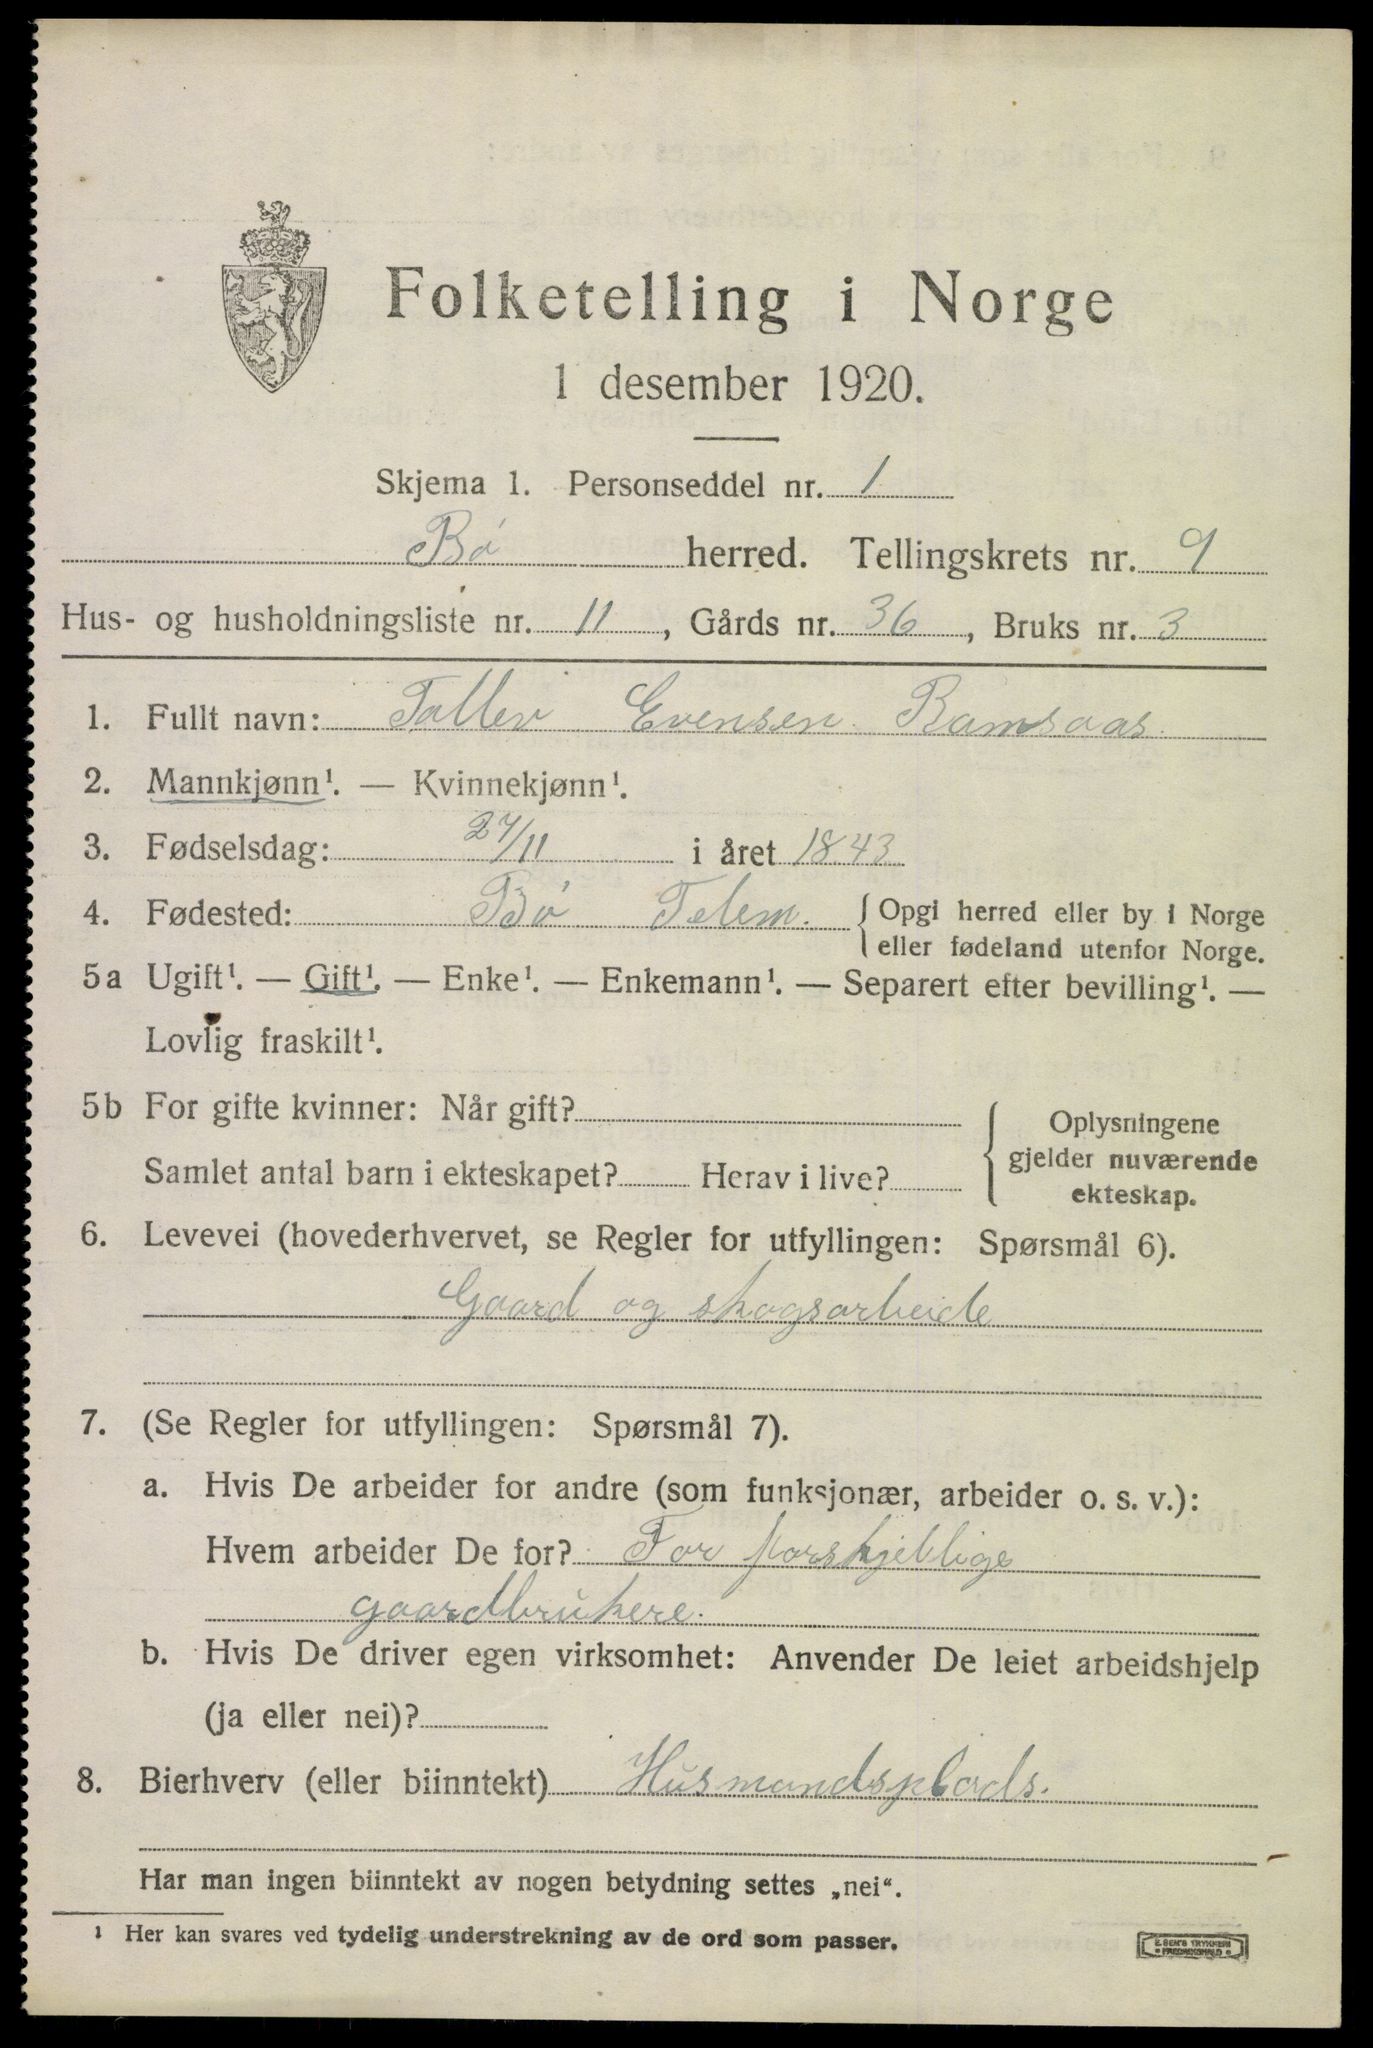 Folketelling i Norge
1 desember 1920.
Skjema 1. Personseddel nr. 1
Bø herred. Tellingskrets nr. 9
Hus- og husholdningsliste nr. 11, Gårds nr. 36, Bruks nr. 3
1. Fullt navn: Tallev Evensen Ramsaas.
2. Mannkjønn¹. — Kvinnekjønn¹.
3. Fødselsdag: 27/11 i året 1843
4. Fødested: Bø Telem. { Opgi herred eller by i Norge
eller fødeland utenfor Norge.
5a Ugift¹. — Gift¹. — Enke¹. — Enkemann¹. — Separert efter bevilling¹. —
Lovlig fraskilt¹.
5b For gifte kvinner: Når gift?
Samlet antal barn i ekteskapet? Herav i live?
Oplysningene
gjelder nuværende
ekteskap.
6. Levevei (hovederhvervet, se Regler for utfyllingen: Spørsmål 6).
Gaard og skogsarbeide
7. (Se Regler for utfyllingen: Spørsmål 7).
a. Hvis De arbeider for andre (som funksjonær, arbeider o. s. v.):
Hvem arbeider De for? For forskjellige
gaardbrukere.
b. Hvis De driver egen virksomhet: Anvender De leiet arbeidshjelp
(ja eller nei)?
8. Bierhverv (eller biinntekt) Husmandsplads.
Har man ingen biinntekt av nogen betydning settes „nei“.
¹ Her kan svares ved tydelig understrekning av de ord som passer.
E. SEM'S TRYKKERI
FREDRIKSHALD